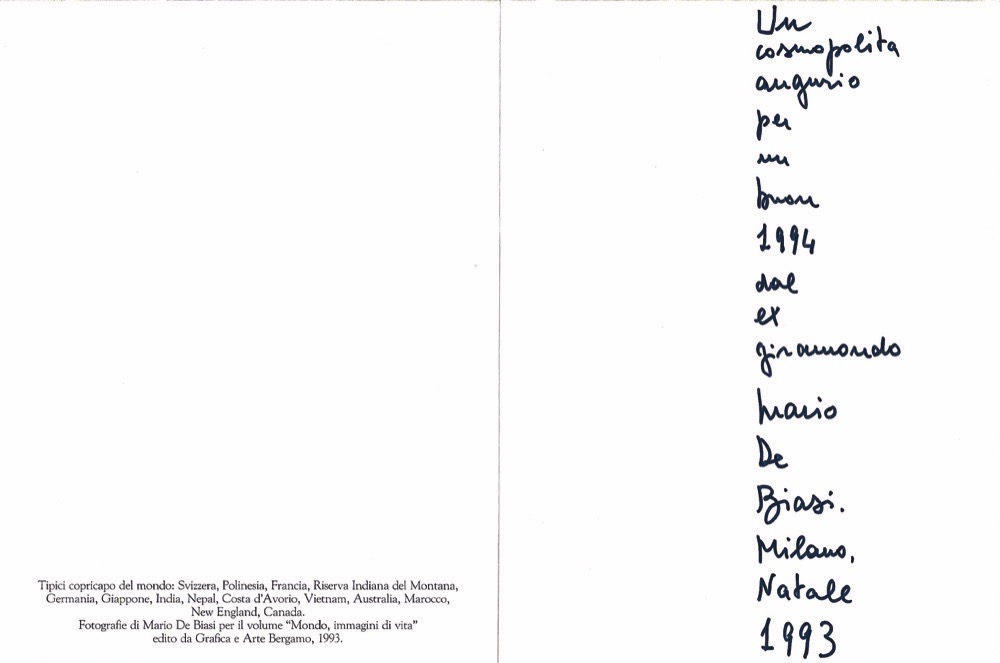 Tipici copricapo del mondo: Svizzera, Polinesia, Francia, Riserva Indiana del Montana,
Germania, Giappone, India, Nepal, Costa d'Avorio, Vietnam, Australia, Marocco,
New England, Canada.
Fotografie di Mario De Biasi per il volume "Mondo, immagini di vita"
edito da Grafica e Arte Bergamo, 1993.
Un
cosmopolita
augurio
per
un
buon
1994
dal
ex
giramondo
Mario
De
Biasi.
Milano,
Natale
1993